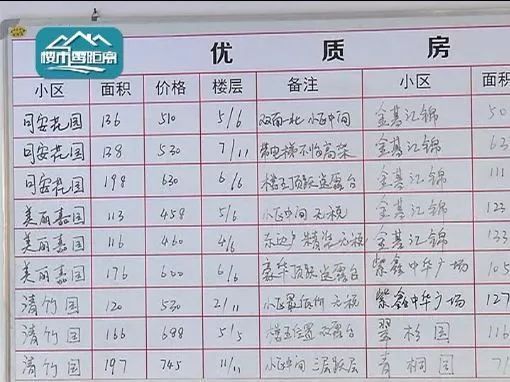 楼市零距离
优质房
小区 面积 价格 楼层 备注 小区
同安花园 136 510 5/6 双南一北 小区中间 金基汇锦 50
同安花园 138 530 7/11 带电梯不怕高架 金基汇锦 63
同安花园 198 630 6/6 楼王顶跃送露台 金基汇锦 111
美丽嘉园 113 458 5/6 小区中间 无税 金基汇锦 123
美丽嘉园 116 460 4/6 东边户 精装 无税 金基汇锦 133
美丽嘉园 176 600 6/6 豪华顶跃送露台 紫鑫中华广场 105
清竹园 120 530 2/11 小区最低价 无税 紫鑫中华广场 127
清竹园 166 688 5/5 楼王位置 双露台 翠杉园 116
清竹园 197 745 11/11 小区中间 三跃层 青桐园